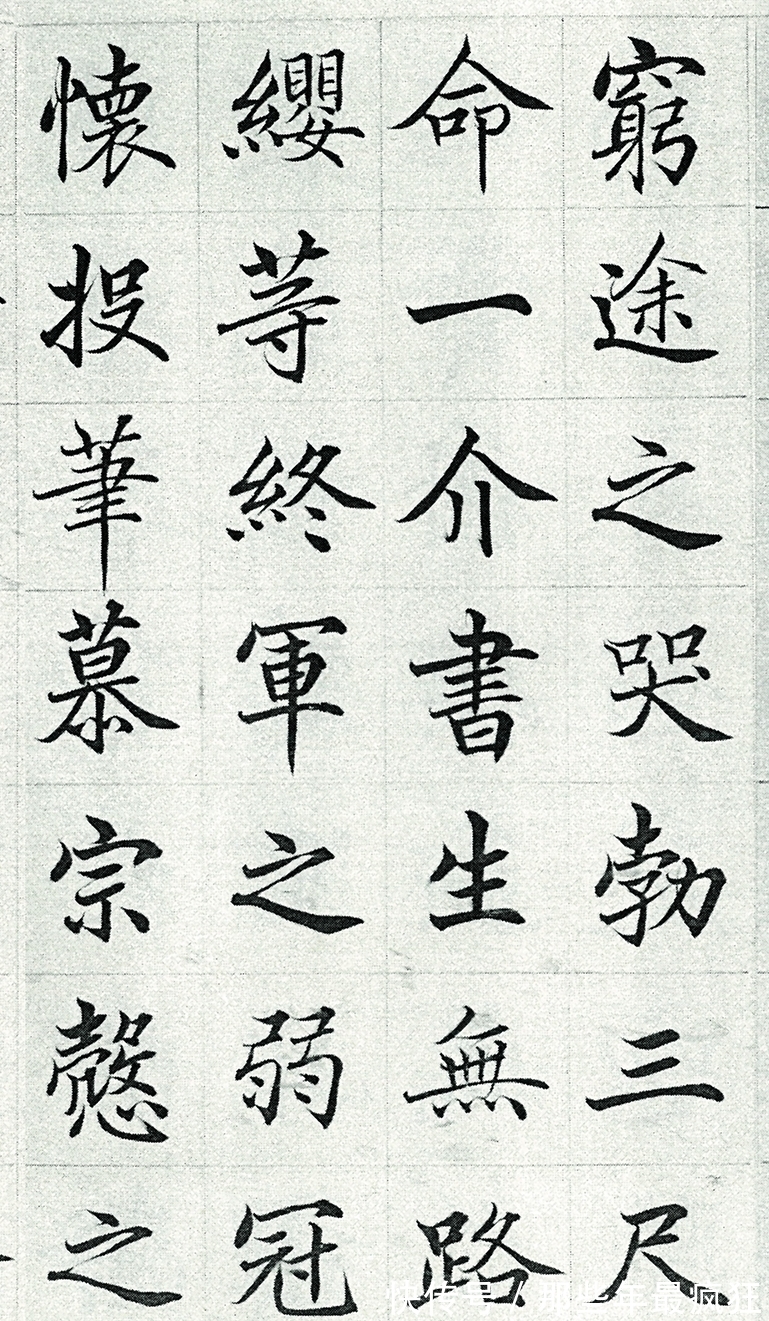 窮途之哭勃三尺
命一介書生無路
纓等終軍之弱冠
懐投筆慕宗慤之
快传号 / 那些年最疯狂